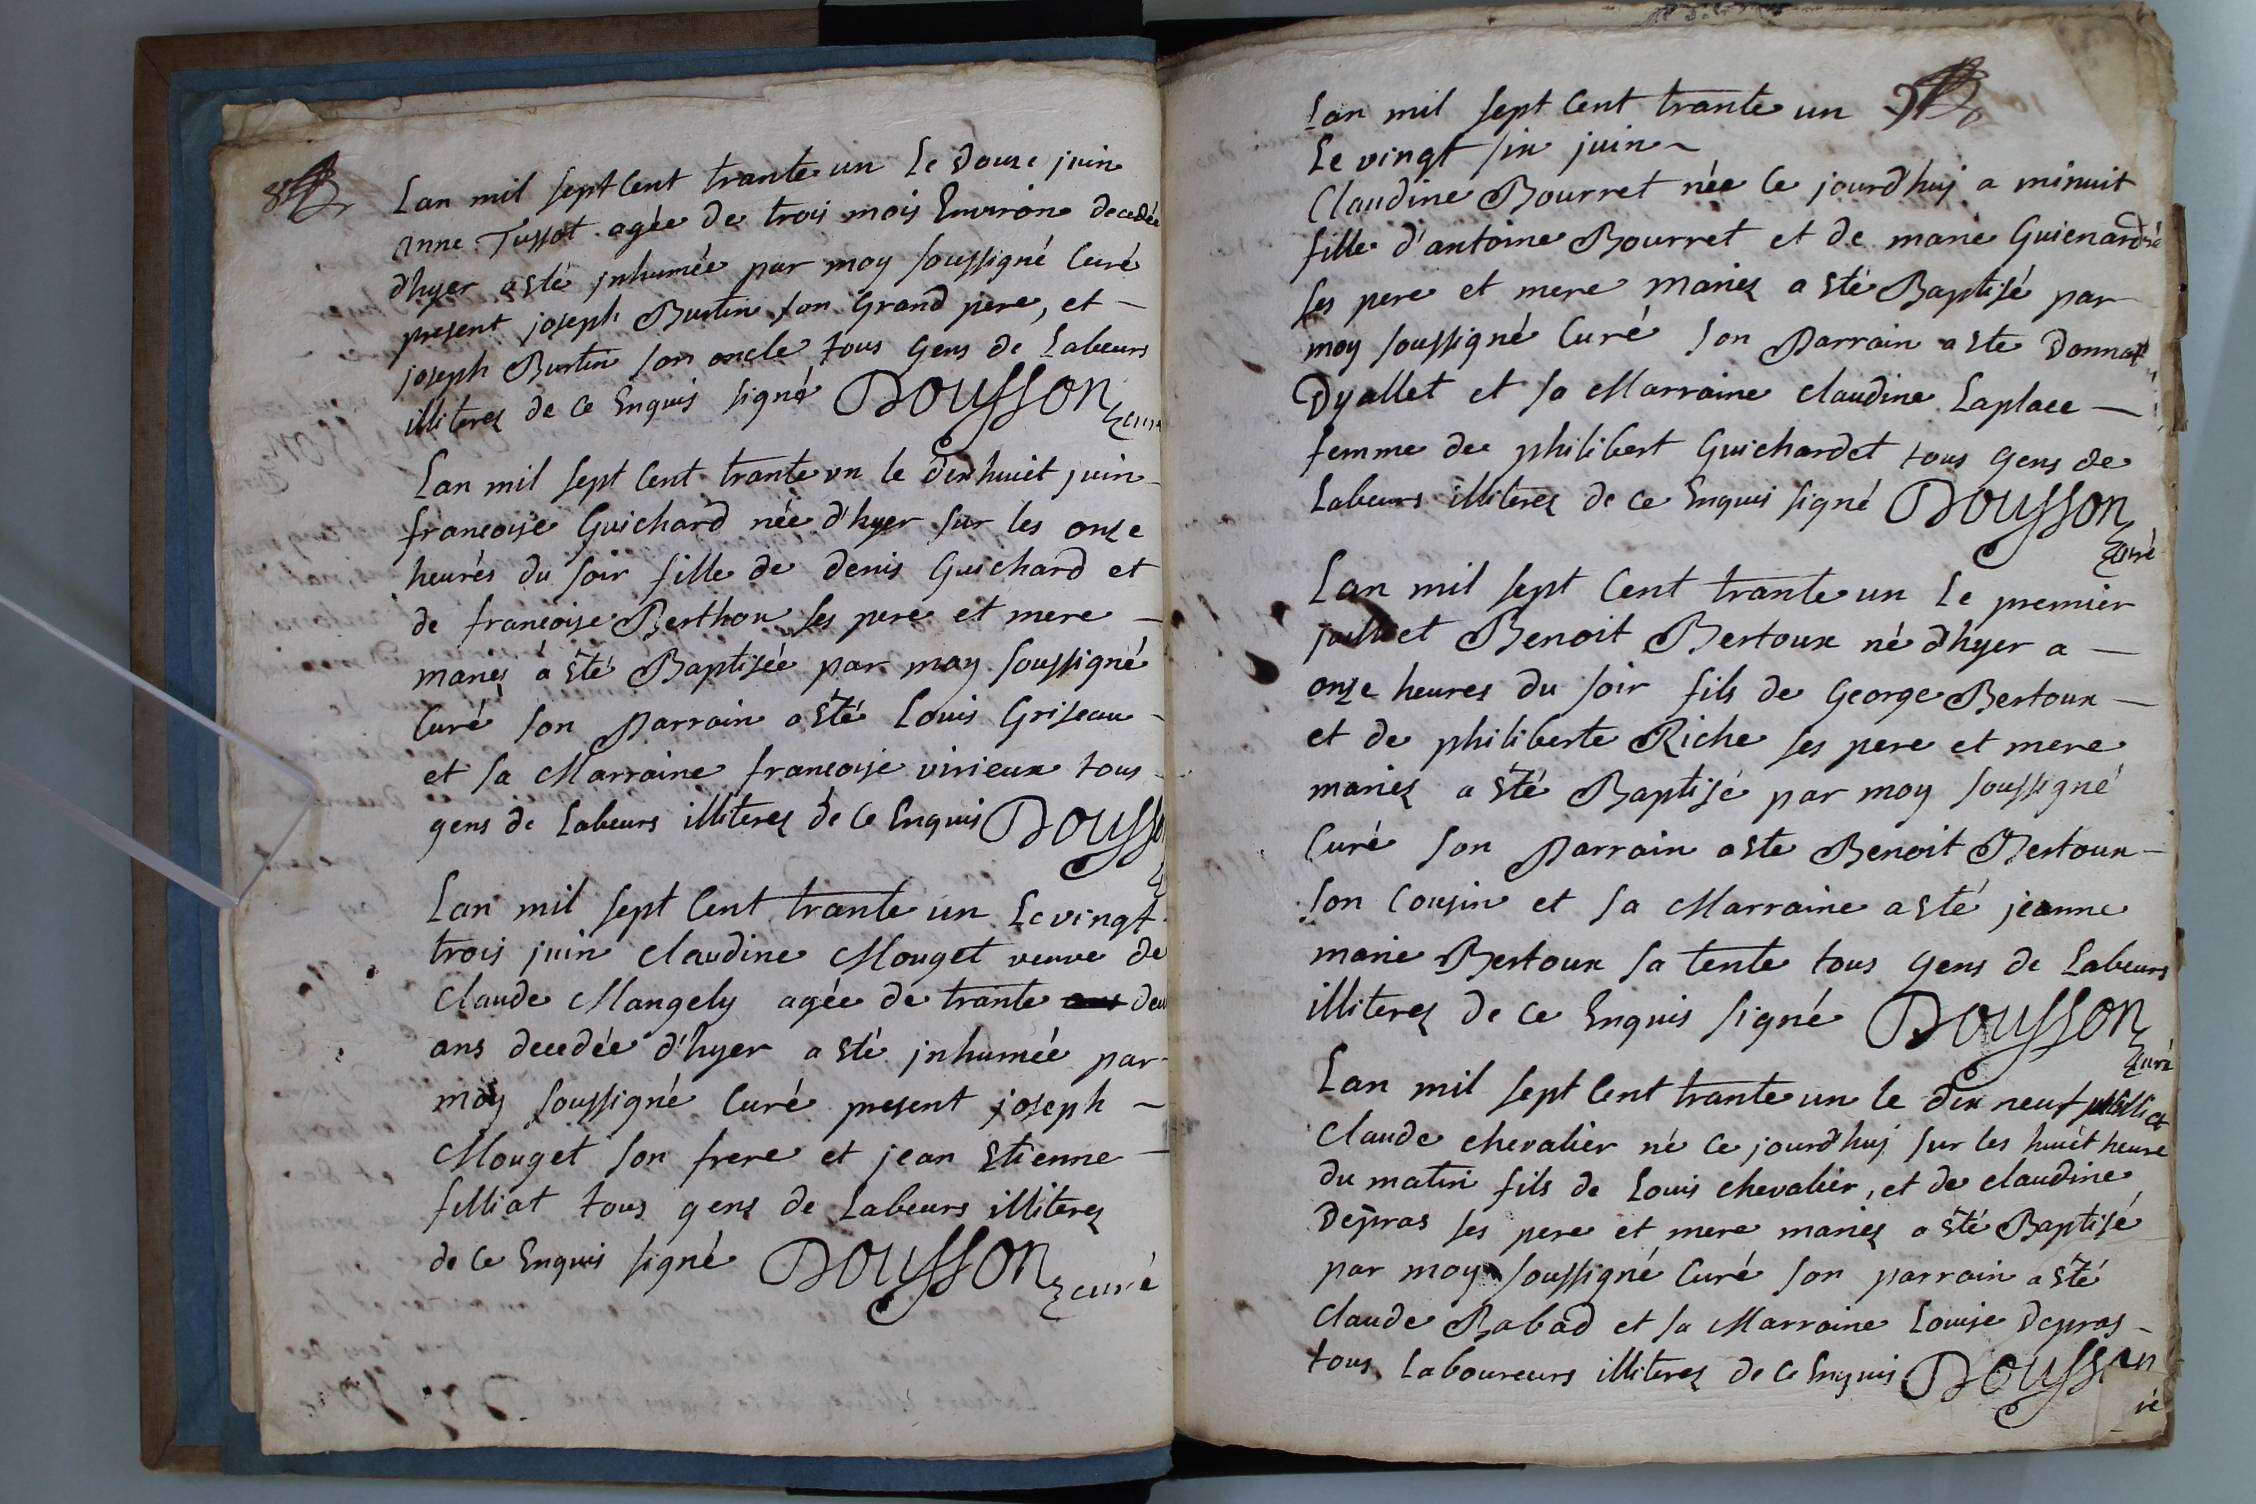 Lan mil sept Cent trante un Le Douze juin
anne Tussot agée de trois mois Environ decedée
d'hyer a sté inhumée par moy soussigné Curé
present joseph Burtin son Grand pere, et -
joseph Burtin son oncle tous gens de Labeurs
illiterez de ce Enquis signé Dousson
curé
Lan mil sept Cent trante un le dix huiet juin
francoise Guichard née d'hyer sur les onze
heurés du soir fille de Denis Guichard et
de francoise Berthou ses pere et mere -
mariez a sté Baptisée par moy soussigné
Curé son parrain a sté Louis Griseau -
et sa Marraine francoise virieux tous
gens de Labeurs illiterez de Ce Enquis Dousso
Lan mil sept Cent trante un Le vingt
trois juin Claudine Mouget veuve de
Claude Mangely agée de trante deu
ans decedée d'hyer a sté inhumée par
moy soussigné Curé present joseph -
Mouget son frere et jean Etienne -
filliat tous gens de Labeurs illiterez
de Ce Enquis signé Dousson
curé
Lan mil sept Cent trante un
Le vingt six juin -
Claudine Bourret née Ce jourd'huj a minuit
fille d'antoine Bourret et de marie
ses pere et mere mariez a sté Baptisé par
moy soussigné Curé son parrain a sté Donnat
Dyallet et sa Marraine Claudine Laplace -
femme de philibert Guichardet tous gens de
Labeurs illiterez de Ce Enquis signé Dousson
curé
Lan mil sept Cent trante un Le premier
juilliet Benoit Bertoux né d'hyer a -
onze heures du soir fils de George Bertoux -
et de philiberte Riche ses pere et mere
mariez a sté Baptisé par moy soussigné
Curé son parrain a sté Benoit Bertoux -
son Cousin et sa Marraine a sté jeanne
marie Bertoux sa tente tous gens de Labeurs
illiterez de Ce Enquis signé Dousson
curé
Lan mil sept Cent trante un le dix neuf juilliet
Claude chevalier né Ce jourd'huj sur les huiet heure
du matin fils de Louis chevalier, et de claudine
Depras ses pere et mere mariez a sté Baptisé
par moy soussigné Curé son parrain a sté
Claude Rabad et sa Marraine Louise Depras -
tous Laboureurs illiterez de Ce Enquis Dousson
ré